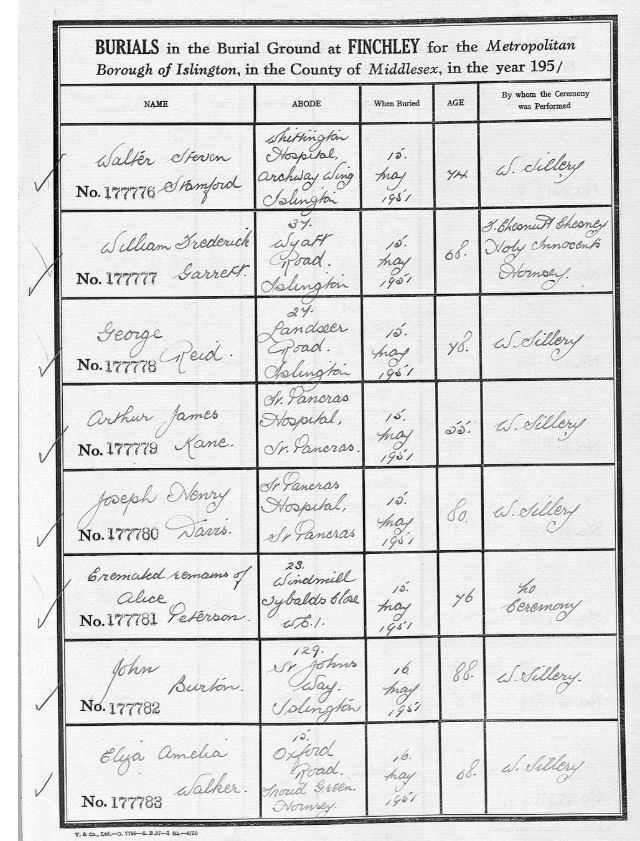 BURIALS in the Burial Ground at FINCHLEY for the Metropolitan
Borough of Islington, in the County of Middlesex, in the year 1951
NAME
ABODE
When Buried
AGE
By whom the Ceremony
was Performed
Walter Steven
No. 177776 Stamford
Whittington
Hospital,
Archway Wing
Islington
15.
May
1951
74
W. Sillery
William Frederick
No. 177777 Garrett.
37.
Wyatt
Road.
Islington
15.
May
1951
68.
J. Chesnutt Chesney
Holy Innocents
Hornsey.
George
No. 177778 Reid.
27.
Landseer
Road.
Islington
15.
May
1951
78.
W. Sillery
Arthur James
No. 177779 Kane.
St. Pancras
Hospital,
St. Pancras.
15.
May
1951
55.
W. Sillery
Joseph Henry
No. 177780 Davis.
St Pancras
Hospital,
St Pancras
15.
May
1951
80.
W. Sillery
Cremated remains of
Alice
No. 177781 Peterson.
23.
Windmill
Sybalds Close
W.C.1.
15.
May
1951
76
No
Ceremony
John
Burton.
No. 177782
129.
St Johns
Way.
Islington
16
May
1951
88.
W. Sillery.
Eliza Amelia
Walker.
No. 177783
15.
Oxford
Road.
Stroud Green.
Hornsey.
16.
May
1951
68.
W. Sillery